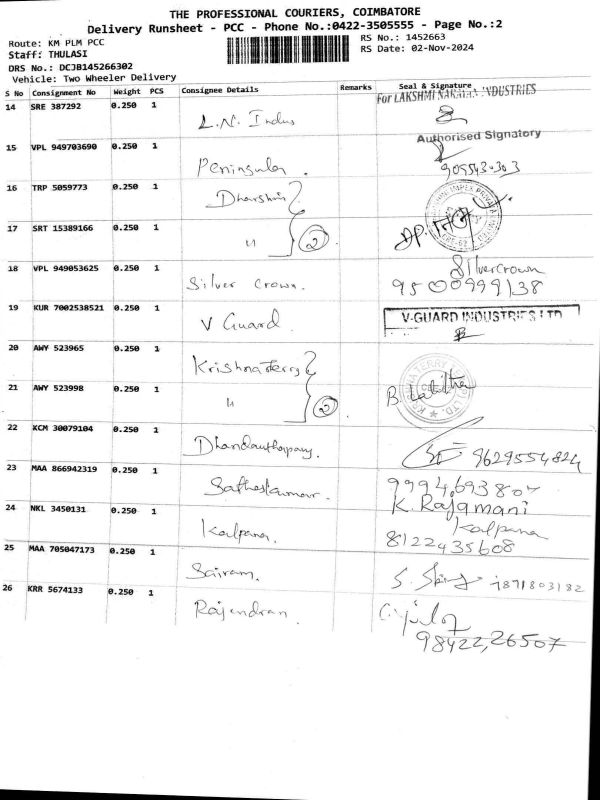 THE PROFESSIONAL COURIERS, COIMBATORE
Delivery Runsheet - PCC - Phone No.:0422-3505555 - Page No.:2
Route: KM PLM PCC RS No.: 1452663
Staff: THULASI RS Date: 02-Nov-2024
DRS No.: DCJB145266302
Vehicle: Two Wheeler Delivery
S No Consignment No Weight PCS Consignee Details Remarks Seal & Signature
For LAKSHMI NARAYAN INDUSTRIES
14 SRE 387292 0.250 1 L.N. Indus
Authorised Signatory
15 VPL 949703690 0.250 1 Peninsular.
16 TRP 5059773 0.250 1 Dharshini
17 SRT 15389166 0.250 1 " 2
18 VPL 949053625 0.250 1 Silver Crown. Silvercrown
9500999138
19 KUR 7002538521 0.250 1 V Guard. V-GUARD INDUSTRIES LTD
20 AWY 523965 0.250 1 Krishna Terry
21 AWY 523998 0.250 1 " 2 B. Lalitha
22 KCM 30079104 0.250 1 Dhandauthapany. 9629554824
23 MAA 866942319 0.250 1 Sathaskumar. 9994693807
K. Rajamani
24 NKL 3450131 0.250 1 Kalpana. Kalpana
8122435608
25 MAA 705047173 0.250 1 Sairam. 7871803182
26 KRR 5674133 0.250 1 Rajendran.
98422,26507